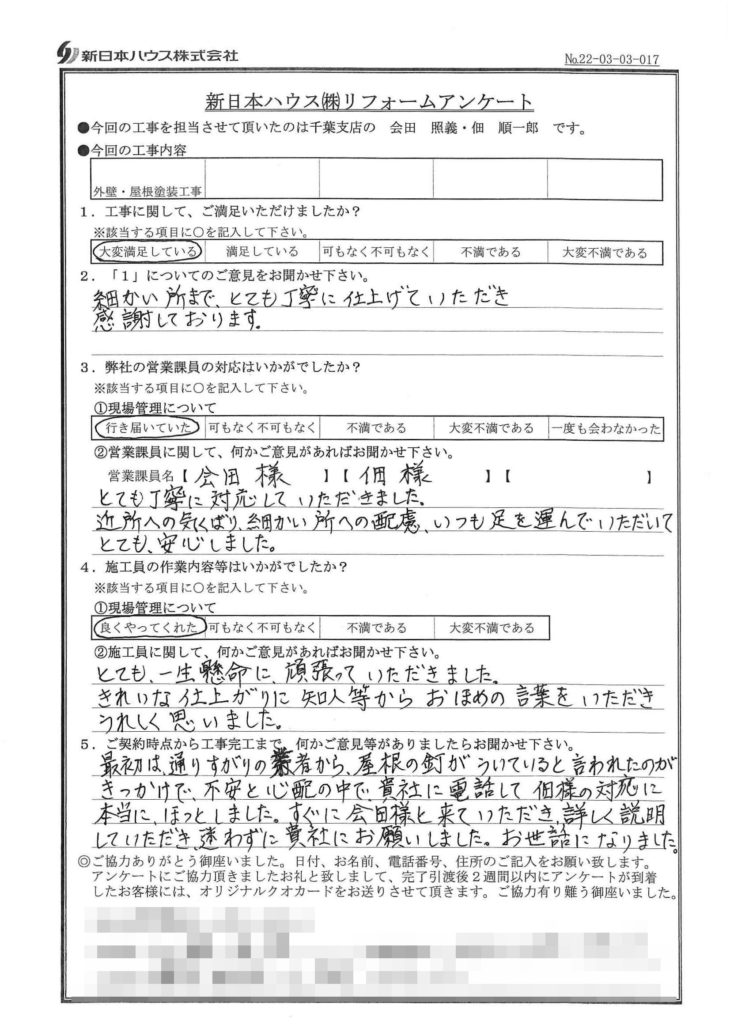 新日本ハウス株式会社
№22-03-03-017
新日本ハウス㈱リフォームアンケート
●今回の工事を担当させて頂いたのは千葉支店の 会田 照義・佃 順一郎 です。
●今回の工事内容
外壁・屋根塗装工事
1．工事に関して、ご満足いただけましたか？
※該当する項目に○を記入して下さい。
大変満足している 満足している 可もなく不可もなく 不満である 大変不満である
2．「1」についてのご意見をお聞かせ下さい。
細かい所まで、とても丁寧に仕上げていただき
感謝しております。
3．弊社の営業課員の対応はいかがでしたか？
※該当する項目に○を記入して下さい。
①現場管理について
行き届いていた 可もなく不可もなく 不満である 大変不満である 一度も会わなかった
②営業課員に関して、何かご意見があればお聞かせ下さい。
営業課員名【 会田 様 】【 佃 様 】【 】
とても丁寧に対応していただきました。
近所への気くばり、細かい所への配慮、いつも足を運んでいただいて
とても、安心しました。
4．施工員の作業内容等はいかがでしたか？
※該当する項目に○を記入して下さい。
①現場管理について
良くやってくれた 可もなく不可もなく 不満である 大変不満である
②施工員に関して、何かご意見があればお聞かせ下さい。
とても、一生懸命に、頑張っていただきました。
きれいな仕上がりに知人等からおほめの言葉をいただき
うれしく思いました。
5．ご契約時点から工事完工まで、何かご意見等がありましたらお聞かせ下さい。
最初は、通りすがりの業者から、屋根の釘がういていると言われたのが
きっかけで、不安と心配の中で、貴社に電話して佃様の対応に
本当に、ほっとしました。すぐに会田様と来ていただき、詳しく説明
していただき、迷わずに貴社にお願いしました。お世話になりました。
◎ご協力ありがとう御座いました。日付、お名前、電話番号、住所のご記入をお願い致します。
アンケートにご協力頂きましたお礼と致しまして、完了引渡後2週間以内にアンケートが到着
したお客様には、オリジナルクオカードをお送りさせて頂きます。ご協力有り難う御座いました。